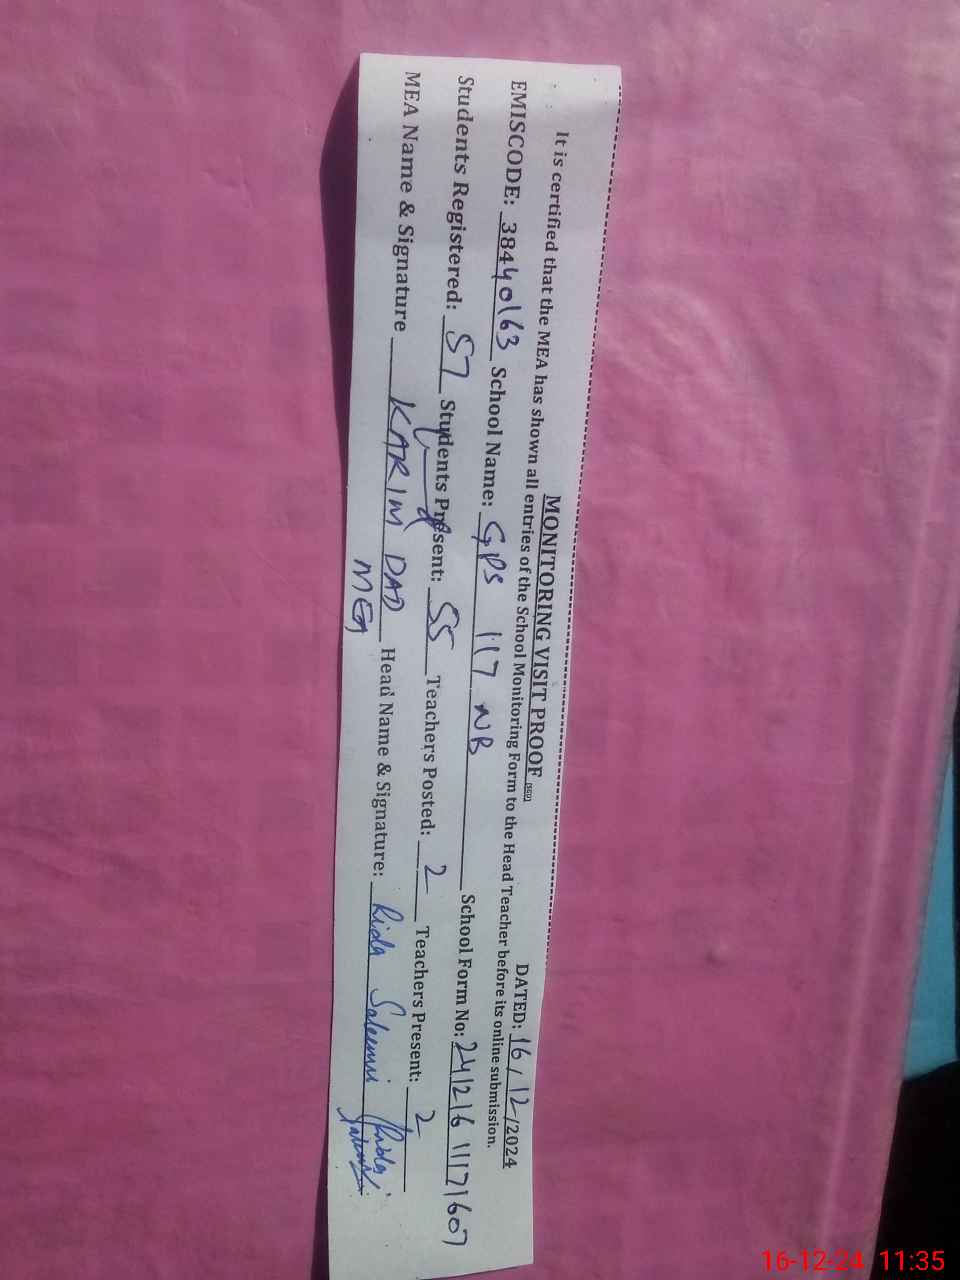 MONITORING VISIT PROOF
DATED: 16/12/2024
It is certified that the MEA has shown all entries of the School Monitoring Form to the Head Teacher before its online submission.
EMISCODE: 38440163 School Name: GPS 117 NB School Form No: 241216 11171607
Students Registered: 57 Students Present: 55 Teachers Posted: 2 Teachers Present: 2
MEA Name & Signature KARIM DAD Head Name & Signature: Rida Saleemi
MEA
16-12-24 11:35